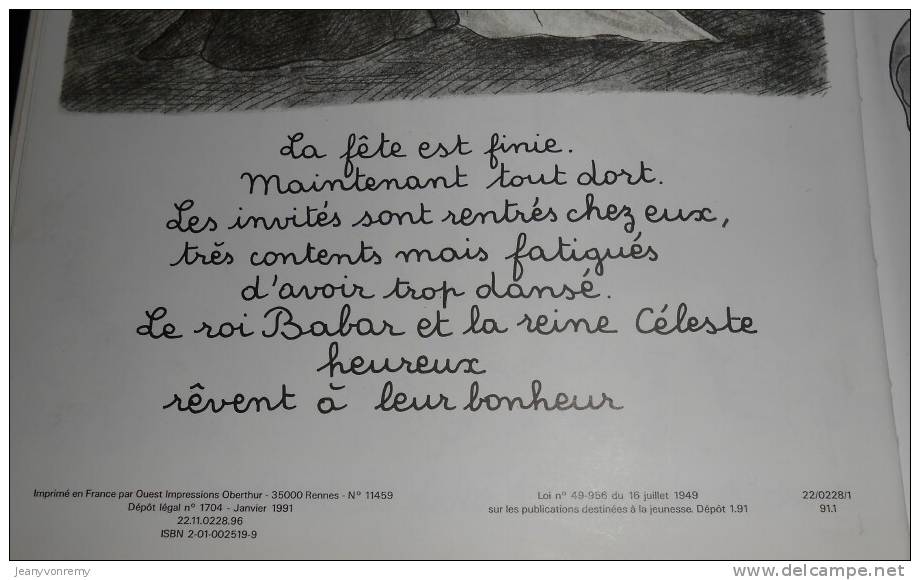 La fête est finie.
Maintenant tout dort.
Les invités sont rentrés chez eux,
très contents mais fatigués
d'avoir trop dansé.
Le roi Babar et la reine Céleste
heureux
rêvent à leur bonheur
Imprimé en France par Ouest Impressions Oberthur - 35000 Rennes - N° 11459
Dépôt légal n° 1704 - Janvier 1991
22.11.0228.96
ISBN 2-01-002519-9
Loi n° 49-956 du 16 juillet 1949
sur les publications destinées à la jeunesse. Dépôt 1.91
22/0228/1
91.1
jeanyvonremy
delcampe.net